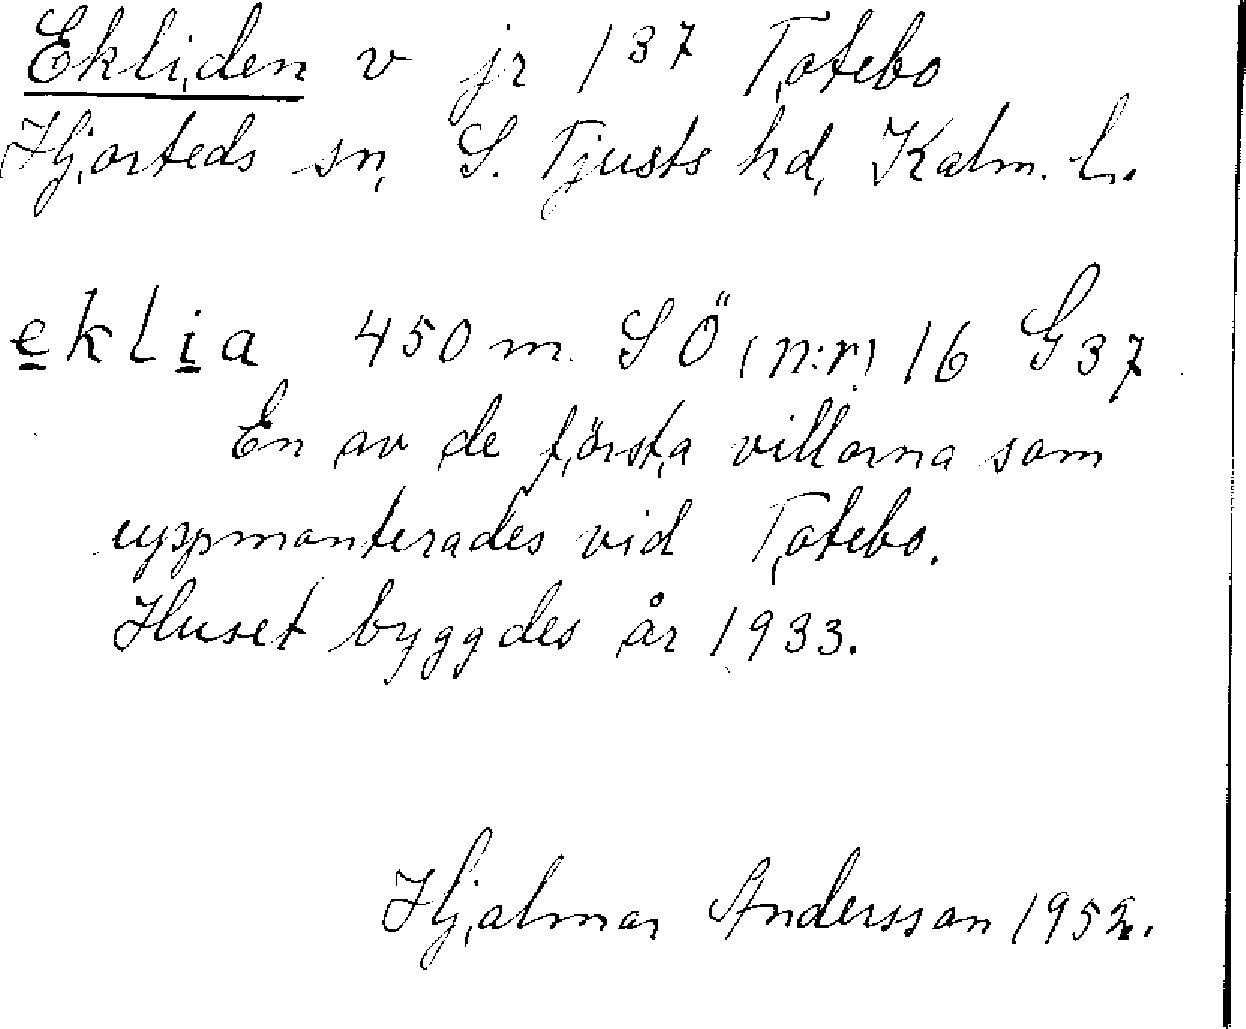 Ekliden v jr 1 37 Totebo
Hjorteds sn, S. Tjusts hd, Kalm. l.
eklia 450 m. SÖ (n:r) 16 G 37
En av de första villorna som
uppmonterades vid Totebo.
Huset byggdes år 1933.
Hjalmar Andersson 1952.